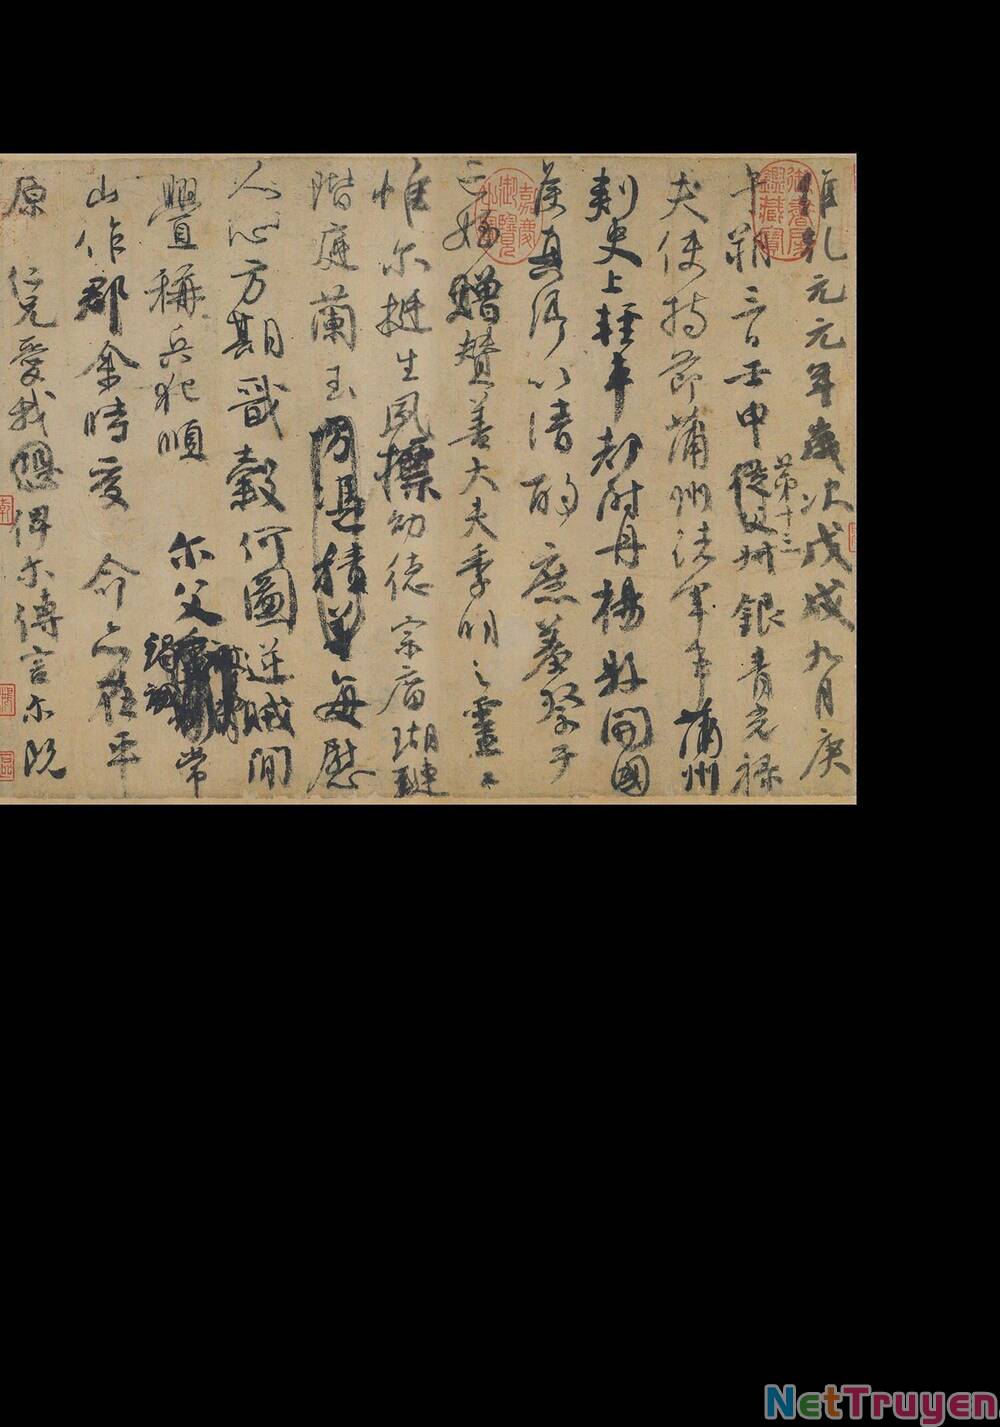 維乾元元年歲次戊戌九月庚
午朔三日壬申第十三從父銀青光祿
夫使持節蒲州諸軍事蒲州
刺史上輕車都尉丹楊縣開國
侯真卿以清酌庶羞祭于
亡姪贈贊善大夫季明之靈曰
惟爾挺生夙標幼德宗廟瑚璉
階庭蘭玉每慰
人心方期戩穀何圖逆賊閒
釁稱兵犯順爾父竭誠常
山作郡余時受命亦在平
原仁兄愛我俾爾傳言爾既
嘉慶御覽之寶
NetTruyen